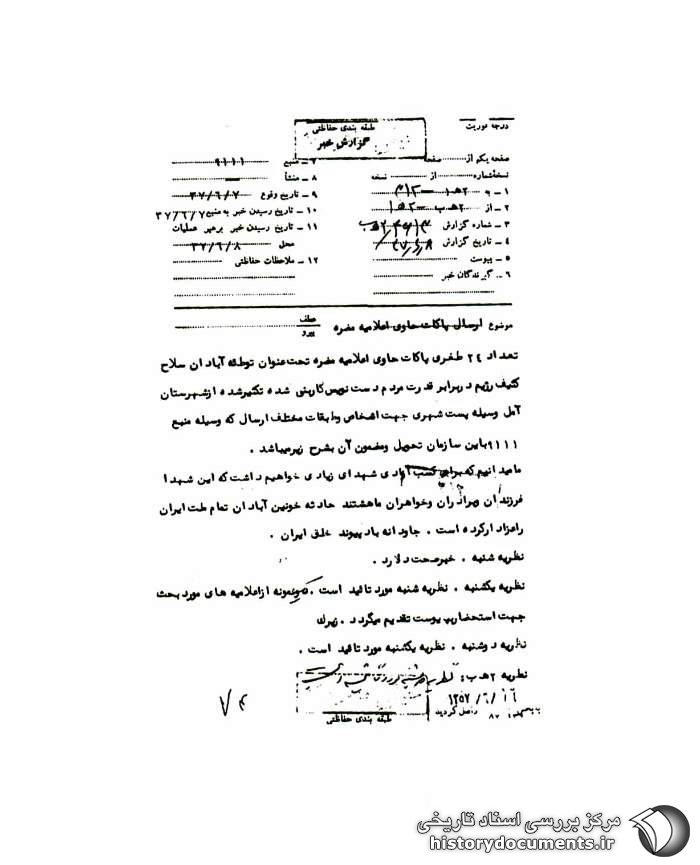 درجه فوریت
طبقه بندی حفاظتی
گزارش خبر
صفحه یکم از صفحه
نسخه شماره از نسخه
۱ ـ به ۲ هـ ۱ ـ ۳۱۲
۲ ـ از ۲ هـ ب
۳ ـ شماره گزارش
۴ ـ تاریخ گزارش ۳۷/۶/۸
۵ ـ پیوست
۶ ـ گیرندگان خبر
۷ ـ منبع ۹۱۱۱
۸ ـ منشأ
۹ ـ تاریخ وقوع ۳۷/۶/۷
۱۰ ـ تاریخ رسیدن خبر به منبع ۳۷/۶/۷
۱۱ ـ تاریخ رسیدن خبر برهبر عملیات
محل ۳۷/۶/۸
۱۲ ـ ملاحظات حفاظتی
موضوع ارسال پاکات حاوی اعلامیه مضره
عطف
پیرو
تعداد ۲۴ طغری پاکات حاوی اعلامیه مضره تحت عنوان توطئه آبادان سلاح
کثیف رژیم در برابر قدرت مردم دست نویس کاربنی شده تکثیر شده از شهرستان
آمل وسیله پست شهری جهت اشخاص و طبقات مختلف ارسال که وسیله منبع
۹۱۱۱ باین سازمان تحویل و مضمون آن بشرح زیر میباشد .
ما میدانیم که برای کسب آزادی شهدای زیادی خواهیم داشت که این شهدا
فرزندان و برادران و خواهران ما هستند حادثه خونین آبادان تمام ملت ایران
را عزادار کرده است . جاودانه باد پیوند خلق ایران .
نظریه شنبه . خبر صحت دارد .
نظریه یکشنبه . نظریه شنبه مورد تائید است . نمونه از اعلامیه های مورد بحث
جهت استحضار پیوست تقدیم میگردد . زیرک
نظریه دوشنبه . نظریه یکشنبه مورد تائید است .
نظریه ۲ هـ ب :
۱۳۵۷/۶/۱۶
واصل گردید
طبقه بندی حفاظتی
مرکز بررسی اسناد تاریخی
historydocuments.ir